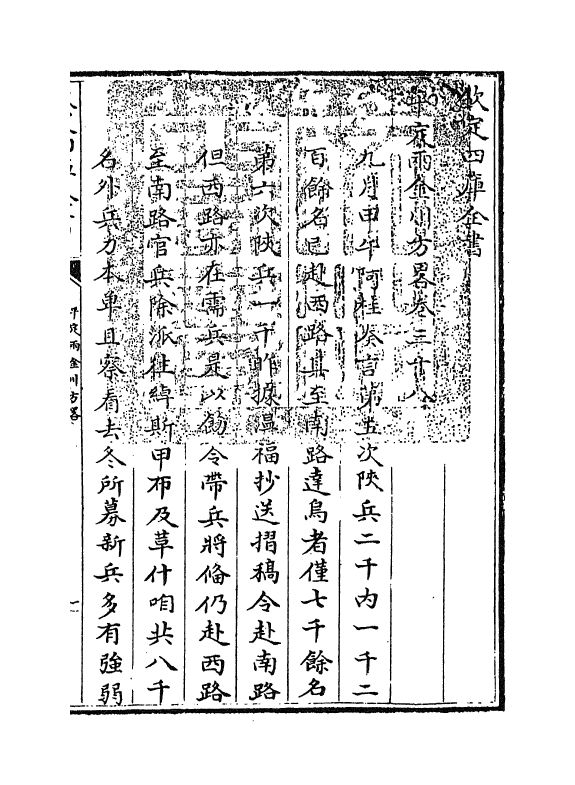 欽定四庫全書
平定兩金川方畧卷三十八
九月甲午阿桂奏言第五次陜兵二千內一千二
百餘名已赴西路其至南路達烏者僅七千餘名
第六次陜兵一千昨據温福抄送摺稿令赴南路
但西路亦在需兵是以飭令帶兵將偹仍赴西路
至南路官兵除派往綽斯甲布及草什咱共八千
名外兵力本單且察看去冬所募新兵多有強弱
平定兩金川方畧
一